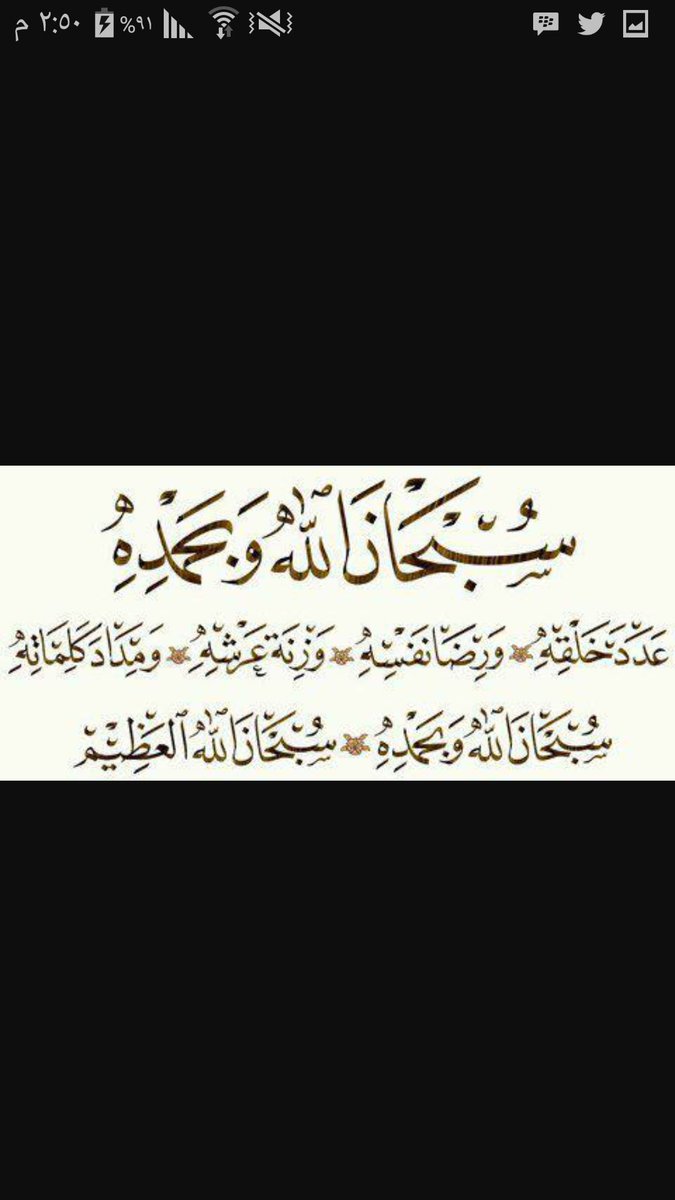 ٢:٥٠ م ٩١%
سُبْحَانَ اللّٰهِ وَبِحَمْدِهِ
عَدَدَ خَلْقِهِ وَرِضَا نَفْسِهِ وَزِنَةَ عَرْشِهِ وَمِدَادَ كَلِمَاتِهِ
سُبْحَانَ اللّٰهِ وَبِحَمْدِهِ سُبْحَانَ اللّٰهِ الْعَظِيْمِ